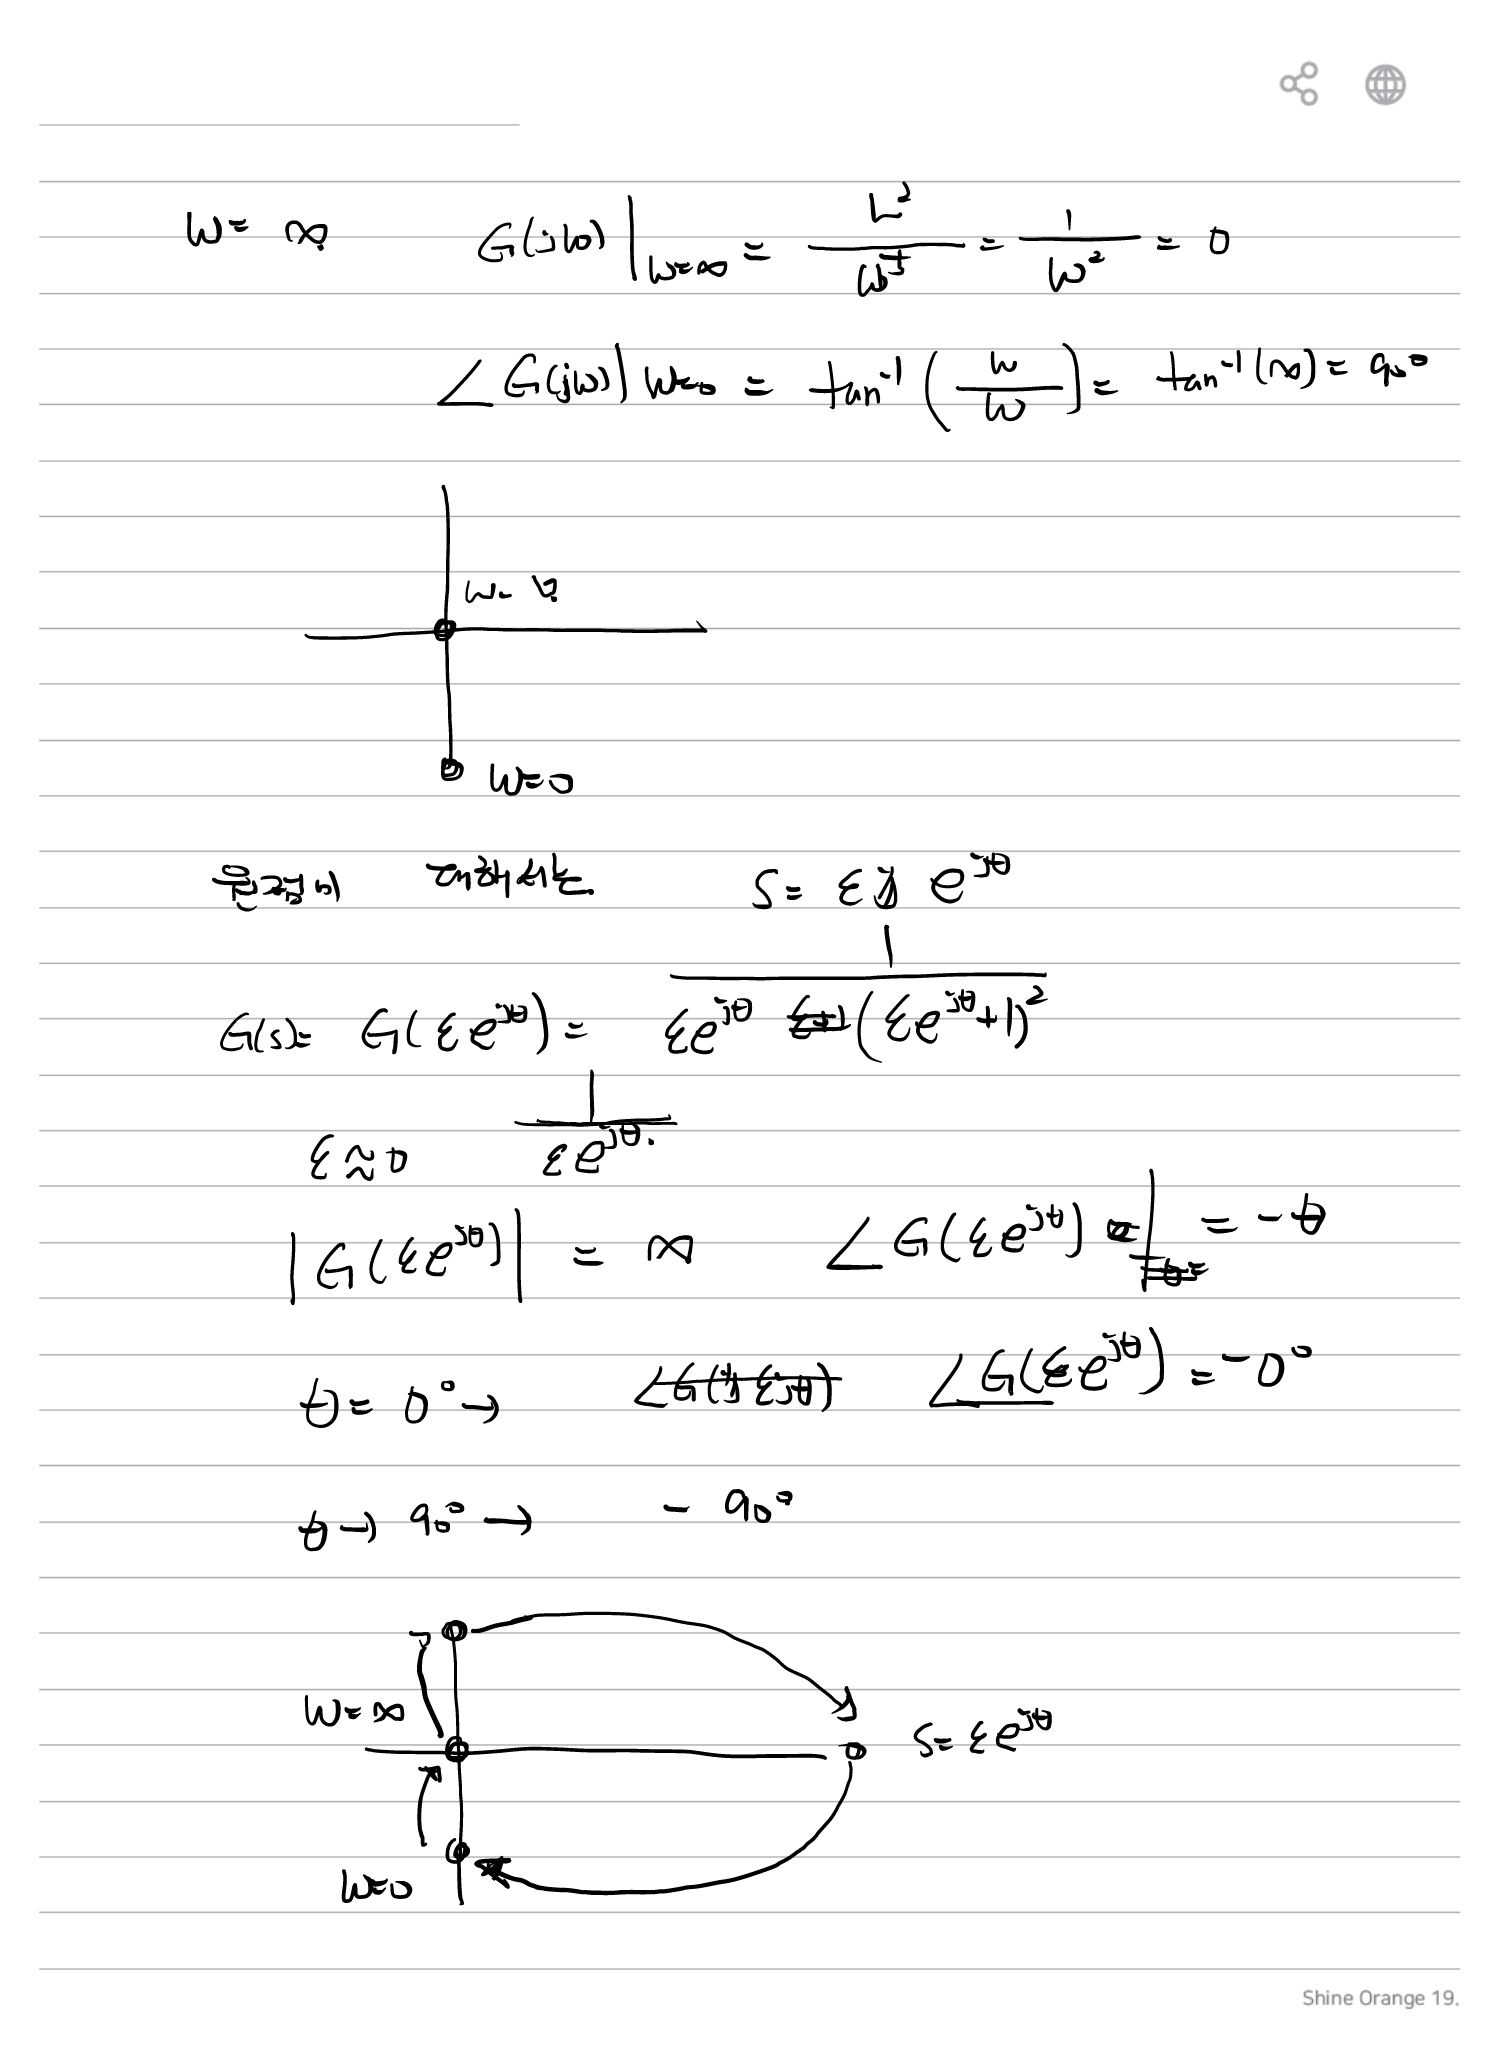 W = ∞ G(jω)|W=∞ = = 1/W² = 0
∠G(jω)|W=0 = tan⁻¹(W/W) = tan⁻¹(∞) = 90°
W=0
원점에 대해서는 S = ε e^jθ
G(s) = G(εe^jθ) = 1/(εe^jθ (εe^jθ+1)²)
ε≈0 1/(εe^jθ).
|G(εe^jθ)| = ∞ ∠G(εe^jθ) | = -θ
θ = 0° → ∠G(εe^jθ) = -0°
θ → 90° → - 90°
W=∞
S= εe^jθ
W=0
Shine Orange 19.